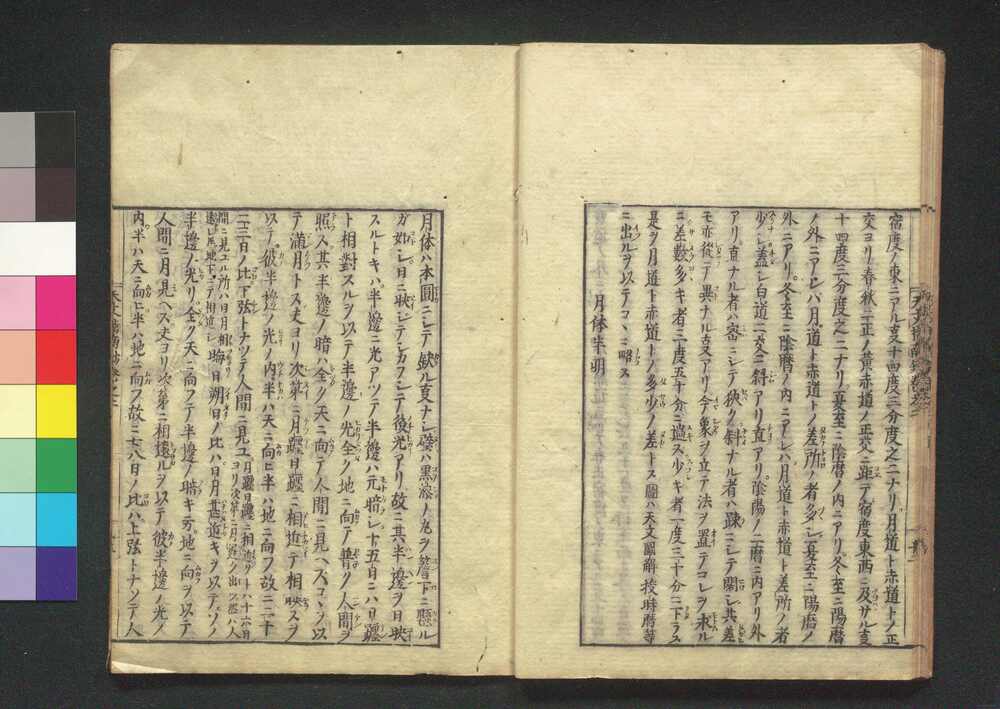 宿度ノ東ニアル支十四度三分度之二ナリ月道ト赤道トノ正
交ヨリ春秋二正ノ黄赤道ノ正交ニ距テ宿度東西ニ及サル支
十四度三分度之二ナリ夏至ニ陰暦ノ内ニアリ冬至ニ陽暦
ノ外ニアレハ月道ト赤道トノ差所ノ者多シ夏至ニ陽暦ノ
外ニアリ冬至ニ陰暦ノ内ニアレハ月道ト赤道ト差所ノ者
少シ蓋シ白道二交ニ斜アリ直アリ陰陽ノ二暦ニ内アリ外
アリ直ナル者ハ密ニシテ狭ク斜ナル者ハ疎ニシテ闊シ其差
モ亦從テ異ナル支アリ今象ヲ立テ法ヲ置テコレヲ求ル
ニ差數多キ者三度五十分ニ過ス少キ者一度三十分ニ下ラス
是ヲ月道ト赤道トノ多少ノ差トス圖ハ天文圖解授時暦等
ニ出ルヲ以テコヽニ略ス
月体半明
月体ハ本圓ニシテ缺ル支ナシ譬ハ黒漆ノ丸ヲ簷下ニ懸ル
カ如シ日ニ映シテシカフシテ後光アリ故ニ其半邊ヲ日映
スルトキハ半邊ニ光アツテ半邊ハ元暗シ十五日ニハ日躔
ト相對スルヲ以テ半邊ノ光全ク地ニ向テ普ク人間ヲ
照ス其半邊ノ暗ハ全ク天ニ向テ人間ニ見ヘスコヽヲ以
テ滿月トス丈ヨリ次第ニ月躔日躔ニ相近テ相映スヲ
以テ彼半邊ノ光ノ内半ハ天ニ向ヒ半ハ地ニ向フ故ニ二十
二三日ノ比下弦トナツテ人間ニ見ユ
晦日朔日ノ比ハ日月甚近キヲ以テソノ
半邊ノ光リ全ク天ニ向フテ半邊ノ暗キ方地ニ向フヲ以テ
人間ニ月見ヘス丈ヨリ次第ニ相遠ルヲ以テ彼半邊ノ光ノ
内半ハ天ニ向ヒ半ハ地ニ向フ故ニ七八日ノ比ハ上弦トナツテ人